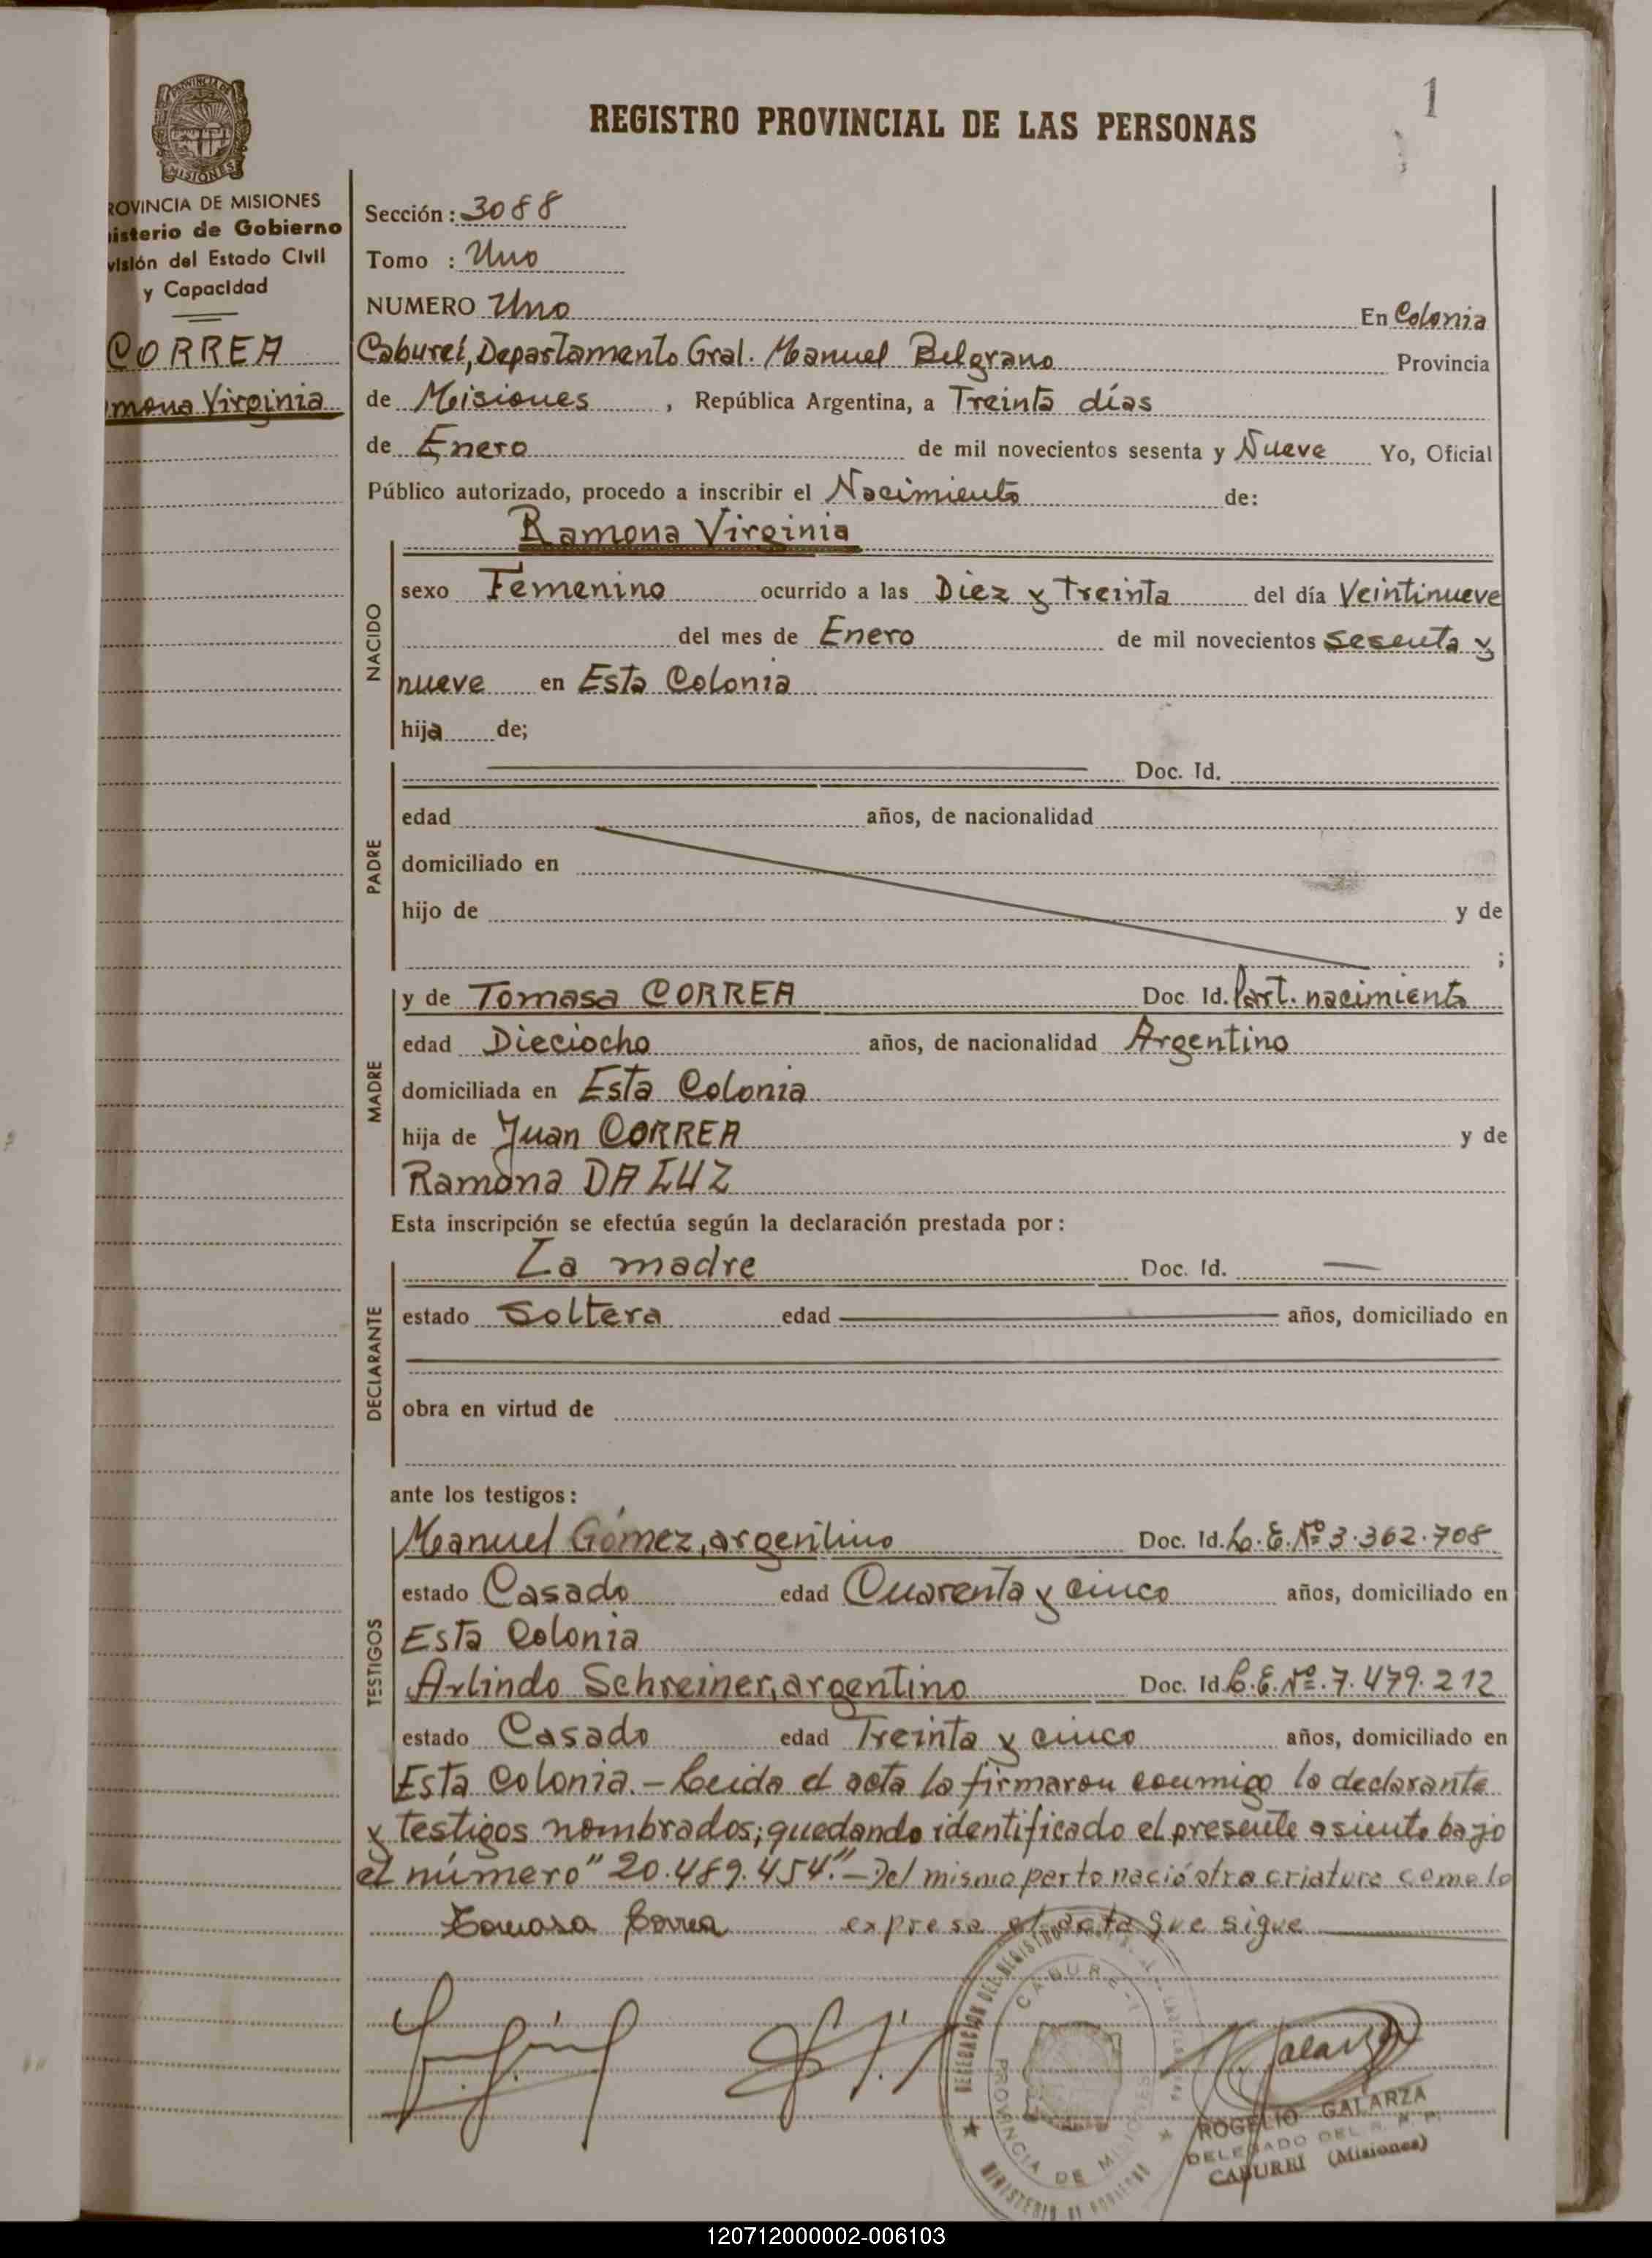 1
REGISTRO PROVINCIAL DE LAS PERSONAS
MISIONES
ROVINCIA DE MISIONES
isterio de Gobierno
visión del Estado Civil
y Capacidad
CORREA
mona Virginia
Sección: 3088
Tomo : Uno
NUMERO Uno En Colonia
Cabureí, Departamento Gral. Manuel Belgrano Provincia
de Misiones, República Argentina, a Treinta días
de Enero de mil novecientos sesenta y Nueve Yo, Oficial
Público autorizado, procedo a inscribir el Nacimiento de:
Ramona Virginia
NACIDO
sexo Femenino ocurrido a las Diez y Treinta del día Veintinueve
del mes de Enero de mil novecientos sesenta y
nueve en Esta Colonia
hija de;
PADRE
Doc. Id.
edad años, de nacionalidad
domiciliado en
hijo de y de
;
MADRE
y de Tomasa CORREA Doc. Id. Part. nacimiento
edad Dieciocho años, de nacionalidad Argentino
domiciliada en Esta Colonia
hija de Juan CORREA y de
Ramona DA LUZ
Esta inscripción se efectúa según la declaración prestada por:
DECLARANTE
La madre Doc. Id. —
estado Soltera edad años, domiciliado en
obra en virtud de
ante los testigos:
TESTIGOS
Manuel Gómez, argentino Doc. Id. L.E. Nº 3.362.708
estado Casado edad Cuarenta y cinco años, domiciliado en
Esta Colonia
Arlindo Schreiner, argentino Doc. Id. L.E. Nº. 7.479.212
estado Casado edad Treinta y cinco años, domiciliado en
Esta Colonia.- Leida el acta la firmaron conmigo la declarante
y testigos nombrados; quedando identificado el presente asiento bajo
el número "20.489.454".- Del mismo parto nació otra criatura como lo
Tomasa Correa expresa el acta que sigue
DELEGACION DEL REGISTRO
CABUREI
PROVINCIA DE MISIONES
MINISTERIO DE GOBIERNO
Galarza
ROGELIO GALARZA
DELEGADO DEL R. N. P.
CABUREI (Misiones)
120712000002-006103